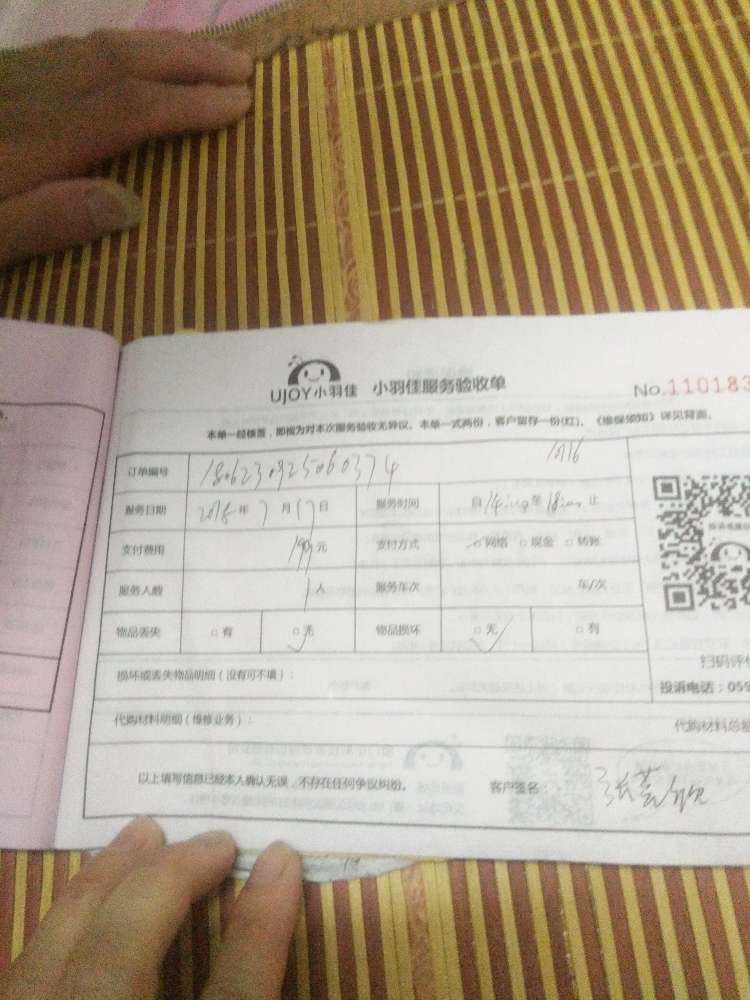 UJOY小羽佳 小羽佳服务验收单 No.110183
本单一经核签，即视为对本次服务验收无异议。本单一式两份，客户留存一份(红)。《维保须知》详见背面。
1016
订单编号 1806230925060374
服务日期 2018年7月17日 服务时间 自14:00至18:00止
支付费用 199元 支付方式 □网络 □现金 □转账
服务人数 1人 服务车次 车/次
物品丢失 □有 □无 物品损坏 □无 □有
扫码评
损坏或丢失物品明细（没有可不填）： 投诉电话：059
代购材料明细（维修业务）： 代购材料总
以上填写信息已经本人确认无误，不存在任何争议纠纷。 客户签名：